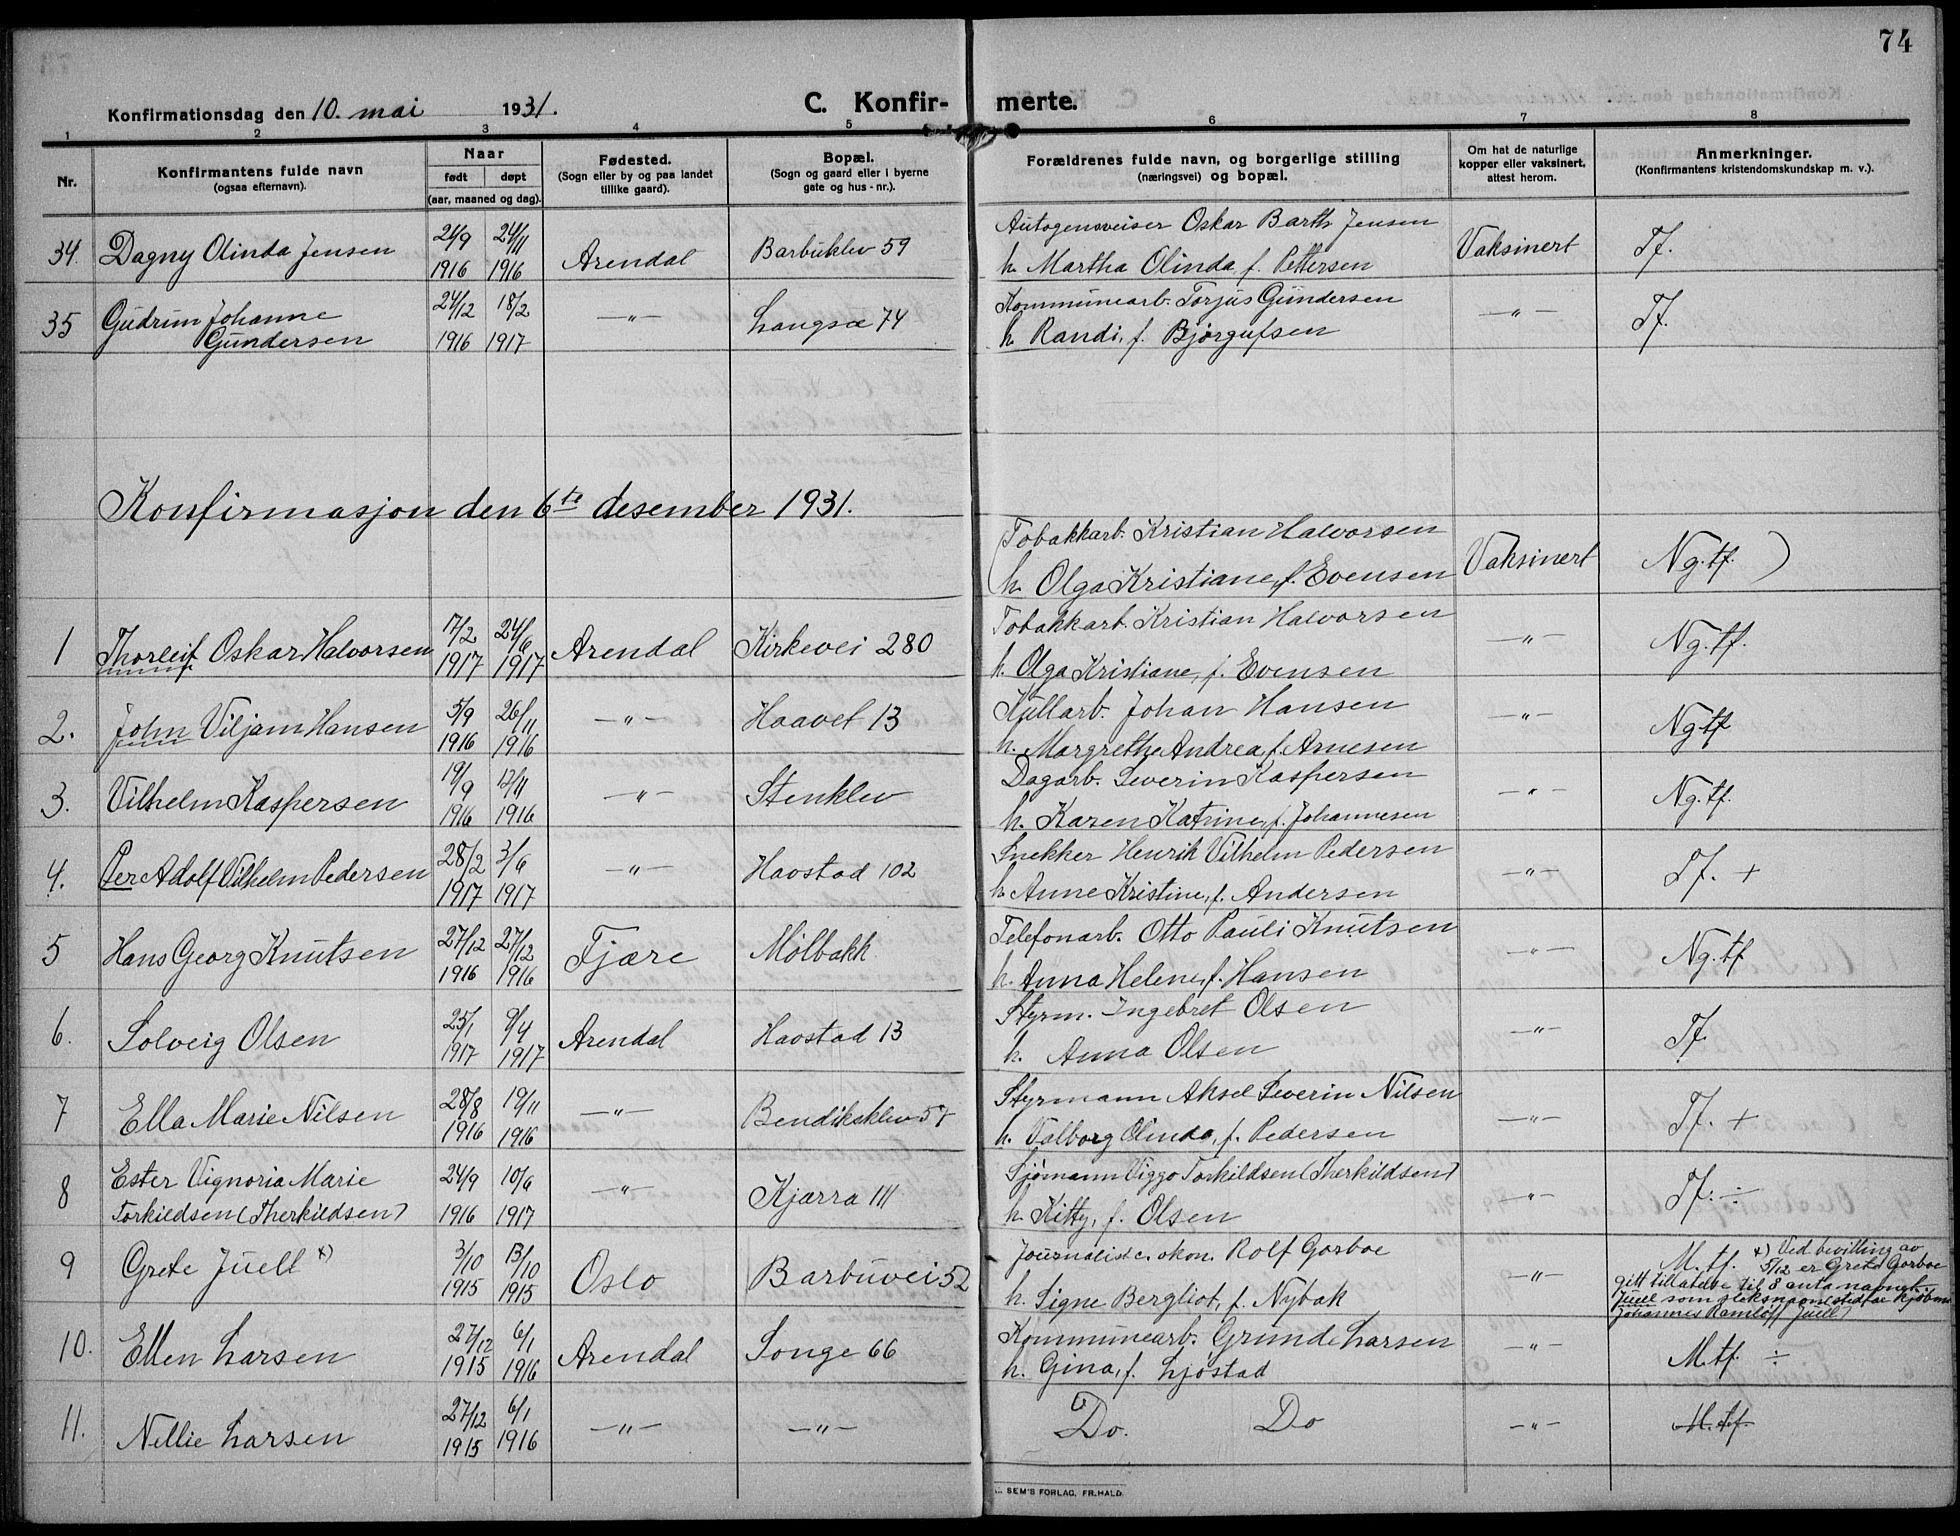 74
Konfirmationsdag den 10. mai 1931. C. Konfir- merte.
1 2 3 4 5 6 7 8
Nr.
Konfirmantens fulde navn
(ogsaa efternavn).
Naar
født døpt
(aar, maaned og dag).
Fødested.
(Sogn eller by og paa landet
tillike gaard).
Bopæl.
(Sogn og gaard eller i byerne
gate og hus-nr.).
Forældrenes fulde navn, og borgerlige stilling
(næringsvei) og bopæl.
Om hat de naturlige
kopper eller vaksinert,
attest herom.
Anmerkninger.
(Konfirmantens kristendomskundskap m. v.).
34. Dagny Olinda Jensen 24/9 1916 24/11 1916 Arendal Barbuklev 59 Autogensveiser Oskar Barth Jensen
h. Martha Olinda, f. Pettersen Vaksinert Tf.
35 Gudrun Johanne
Gundersen 24/12 1916 18/2 1917 —"— Langsæ 74 Kommunearb. Torjus Gundersen
h. Randi, f. Bjørgufsen —"— Tf.
Konfirmasjon den 6te desember 1931.
(Tobakkarb. Kristian Halvorsen
h. Olga Kristiane, f. Evensen Vaksinert Ng.tf. )
1 Thorleif Oskar Halvorsen 17/2 1917 24/6 1917 Arendal Kirkevei 280 Tobakkarb. Kristian Halvorsen
h. Olga Kristiane, f. Evensen —"— Ng.tf.
2. John Viljam Hansen 5/9 1916 26/11 1916 —"— Haavet 13 Kullarb. Johan Hansen
h. Margrethe Andrea, f. Arnesen —"— Ng.tf
3. Vilhelm Kaspersen 19/9 1916 12/11 1916 —"— Stenklev Dagarb. Severin Kaspersen
h. Karen Katrine, f. Johannesen —"— Ng.tf.
4. Per Adolf Vilhelm Pedersen 28/2 1917 3/6 1917 —"— Havstad 102 Snekker Henrik Vilhelm Pedersen
h. Anne Kristine, f. Andersen —"— Tf. +
5 Hans Georg Knutsen 27/12 1916 27/12 1916 Fjære Mølbakk Telefonarb. Otto Pauli Knutsen
h. Anna Helene, f. Hansen —"— Ng.tf
6. Solveig Olsen 25/1 1917 9/4 1917 Arendal Havstad 13 Styrm. Ingebret Olsen
h. Anna Olsen —"— Tf.
7 Ella Marie Nilsen 28/8 1916 19/11 1916 —"— Bendiksklev 57 Styrmann Aksel Severin Nilsen
h. Valborg Olinda, f. Pedersen —"— Tf. +
8 Ester Vignoria Marie
Torkildsen (Therkildsen) 24/9 1916 10/6 1917 —"— Kjærra 111 Sjømann Viggo Torkildsen (Therkildsen)
h. Kitty, f. Olsen —"— Tf. ÷
9 Grete Juell x) 3/10 1915 13/10 1915 Oslo Barbuvei 52 Journalist c. økon. Rolf Gorboe
h. Signe Bergliot, f. Nybak —"— M.tf. x) Ved bevilling av
5/12 er Grete Gorboe
gitt tillatelse til å anta navnet
Juell som slektsnavn
Johannes Ramløff Juell)
10. Ellen Larsen 27/12 1915 6/1 1916 Arendal Songe 66 Kommunearb. Grunde Larsen
h. Gina, f. Ljøstad —"— M.tf. ÷
11. Nellie Larsen 27/12 1915 6/1 1916 —"— —"— Do. Do —"— M.tf.
SEM'S FORLAG, FR.HALD.